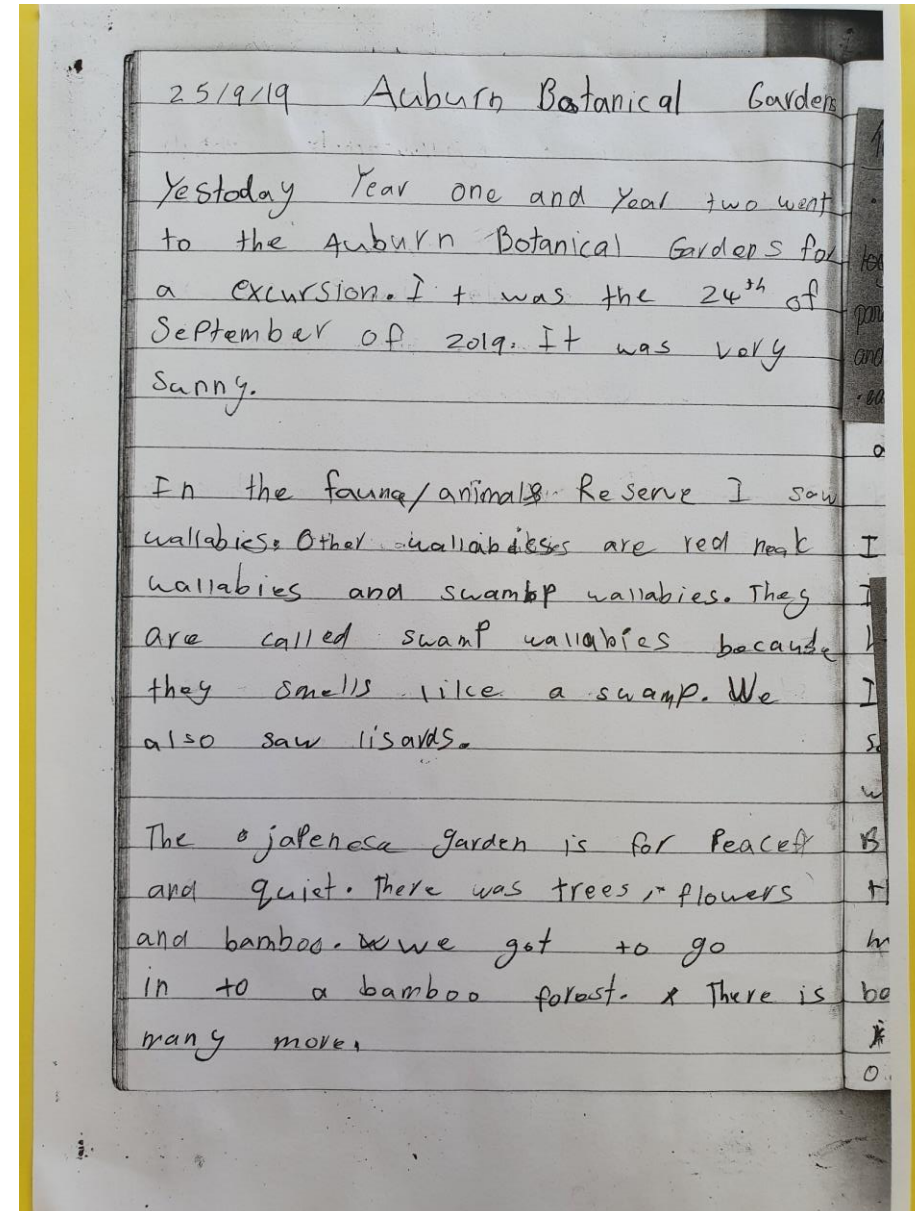 25/9/19 Auburn Botanical Gardens
Yestoday Year one and Year two went
to the Auburn Botanical Gardens for
a excursion. It was the 24th of
September of 2019. It was very
Sunny.
In the fauna/animals Reserve I saw
wallabies. Other wallabies are red neak
wallabies and swamp wallabies. They
are called swamp wallabies because
they smells like a swamp. We
also saw lisards.
The japenese garden is for Peace
and quiet. There was trees, flowers
and bamboo. we got to go
in to a bamboo forest. There is
many more.